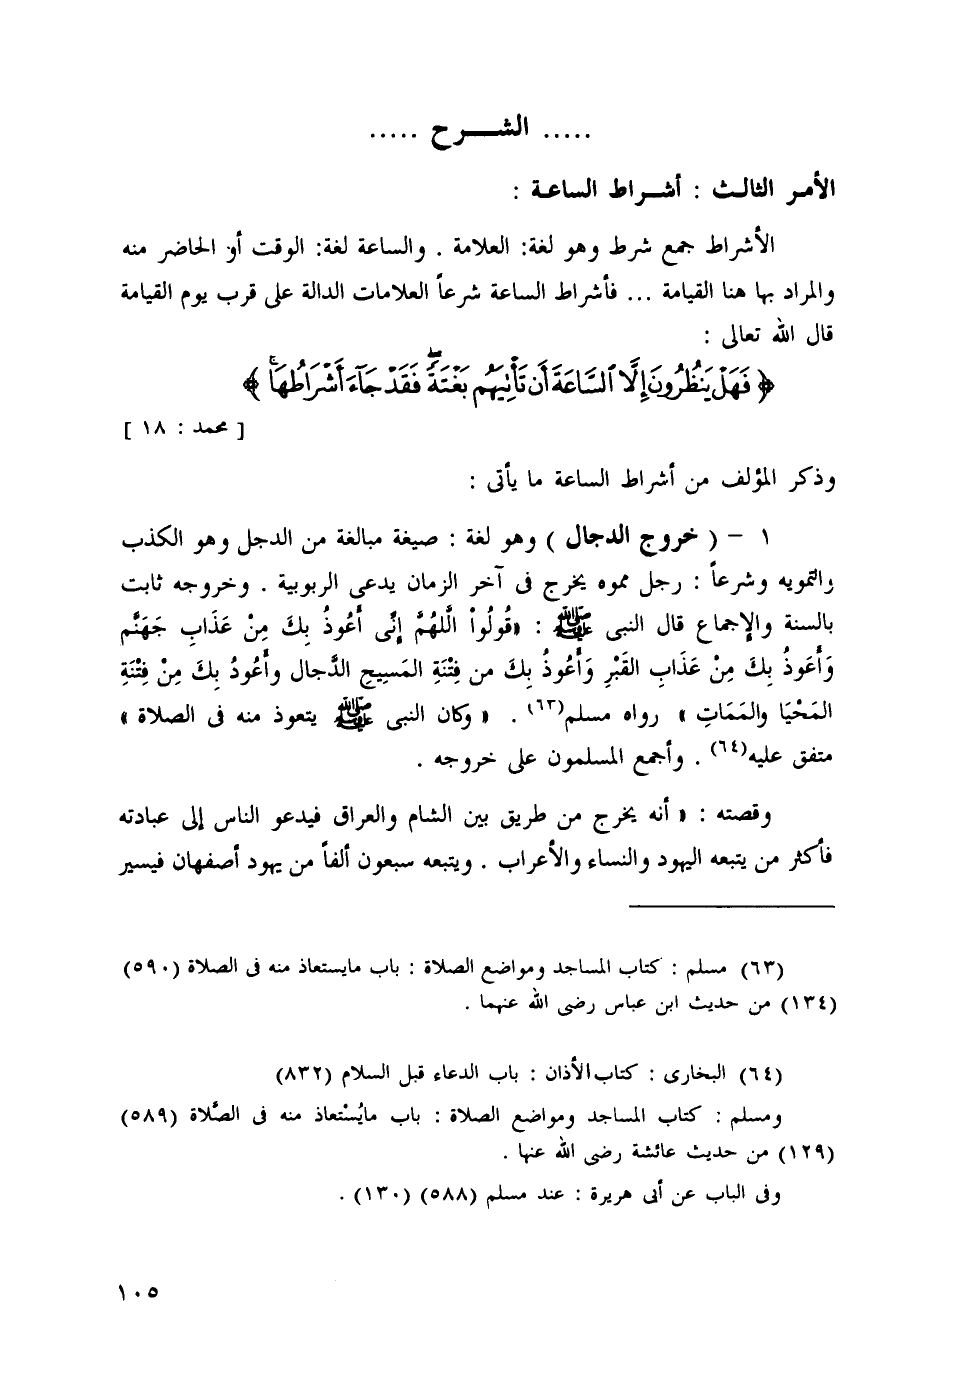 ..... الشـــرح .....
الأمـر الثالـث : أشـراط الساعـة :
الأشراط جمع شرط وهو لغة: العلامة . والساعة لغة: الوقت أو الحاضر منه
والمراد بها هنا القيامة ... فأشراط الساعة شرعاً العلامات الدالة على قرب يوم القيامة
قال الله تعالى :
﴿ فَهَلْ يَنظُرُونَ إِلَّا ٱلسَّاعَةَ أَن تَأْتِيَهُم بَغْتَةً ۖ فَقَدْ جَآءَ أَشْرَاطُهَا ۚ ﴾
[ محمد : ١٨ ]
وذكر المؤلف من أشراط الساعة ما يأتى :
١ – ( خروج الدجال ) وهو لغة : صيغة مبالغة من الدجل وهو الكذب
والتمويه وشرعاً : رجل مموه يخرج فى آخر الزمان يدعى الربوبية . وخروجه ثابت
بالسنة والإجماع قال النبى ﷺ : «قُولُواْ الَّلهُمَّ إِنِّى أَعُوذُ بِكَ مِنْ عَذَابِ جَهَنَّم
وَأَعَوذُ بِكَ مِنْ عَذَابِ القَبْرِ وَأَعُوذُ بِكَ من فِتْنَةِ المَسِيحِ الدَّجال وأَعُودُ بِكَ مِنْ فِتْنَةِ
المَحْيَا والمَمَاتِ » رواه مسلم(٦٣) . « وكان النبى ﷺ يتعوذ منه فى الصلاة »
متفق عليه(٦٤) . وأجمع المسلمون على خروجه .
وقصته : « أنه يخرج من طريق بين الشام والعراق فيدعو الناس إلى عبادته
فأكثر من يتبعه اليهود والنساء والأعراب . ويتبعه سبعون ألفاً من يهود أصفهان فيسير
(٦٣) مسلم : كتاب المساجد ومواضع الصلاة : باب مايستعاذ منه فى الصلاة (٥٩٠)
(١٣٤) من حديث ابن عباس رضى الله عنهما .
(٦٤) البخارى : كتاب الأذان : باب الدعاء قبل السلام (٨٣٢)
ومسلم : كتاب المساجد ومواضع الصلاة : باب مايُسْتعاذ منه فى الصَّلاة (٥٨٩)
(١٢٩) من حديث عائشة رضى الله عنها .
وفى الباب عن أبى هريرة : عند مسلم (٥٨٨) (١٣٠) .
١٠٥